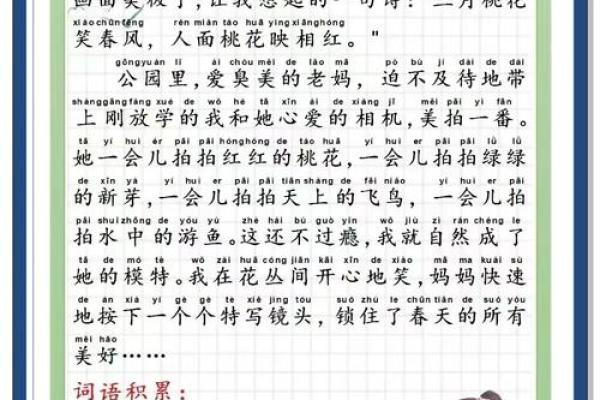 画面美极了，让我想起的一句诗：“三月桃花
xiào chūn fēng rén miàn táo huā yìng xiāng hóng
笑春风，人面桃花映相红。"
gōng yuán lǐ ài chòu měi de lǎo mā pò bù jí dài de dài
公园里，爱臭美的老妈，迫不及待地带
shàng gāng fàng xué de wǒ hé tā xīn ài de xiàng jī měi pāi yì fān
上刚放学的我和她心爱的相机，美拍一番。
tā yí huì ér pāi pāi hóng hóng de táo huā yí huì er pāi pāi lǜ lǜ
她一会儿拍拍红红的桃花，一会儿拍拍绿绿
de xīn yá yí huì er pāi pāi tiān shàng de fēi niǎo yí huì er pāi
的新芽，一会儿拍拍天上的飞鸟，一会儿拍
pāi shuǐ zhōng de yóu yú zhè hái bú guò yǐn wǒ jiù zì rán chéng le
拍水中的游鱼。这还不过瘾，我就自然成了
tā de mó tè wǒ zài huā cóng jiān kāi xīn de xiào mā ma kuài sù
她的模特。我在花丛间开心地笑，妈妈快速
de àn xià yí gè gè tè xiě jìng tóu suǒ zhù le chūn tiān de suǒ yǒu
地按下一个个特写镜头，锁住了春天的所有
měi hǎo
美好……
词语积累：